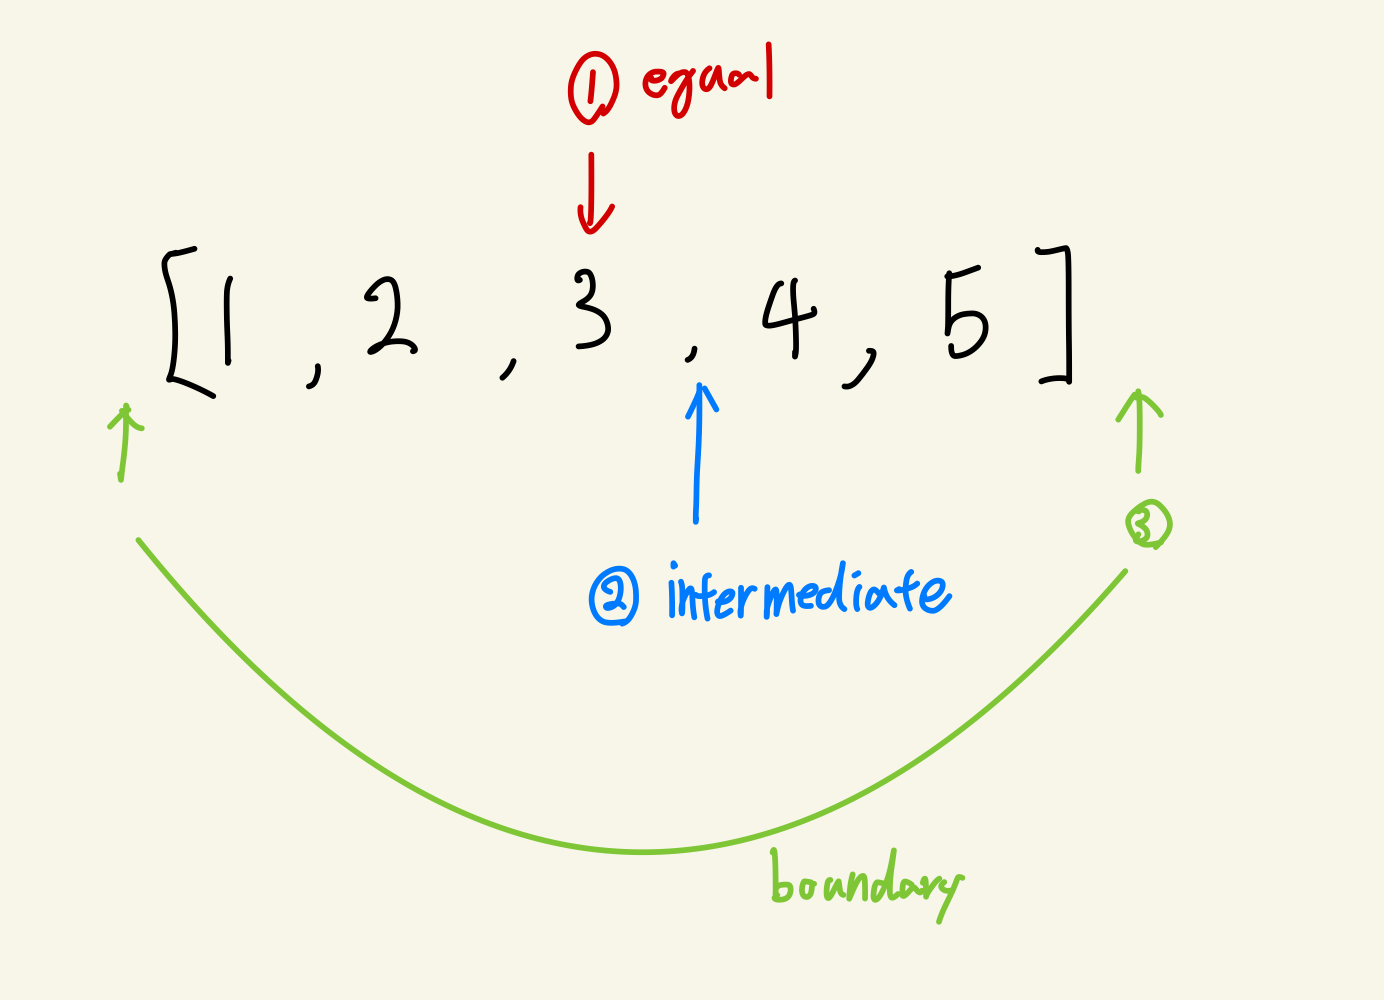 ① equal
[1, 2, 3, 4, 5]
② intermediate
③
boundary